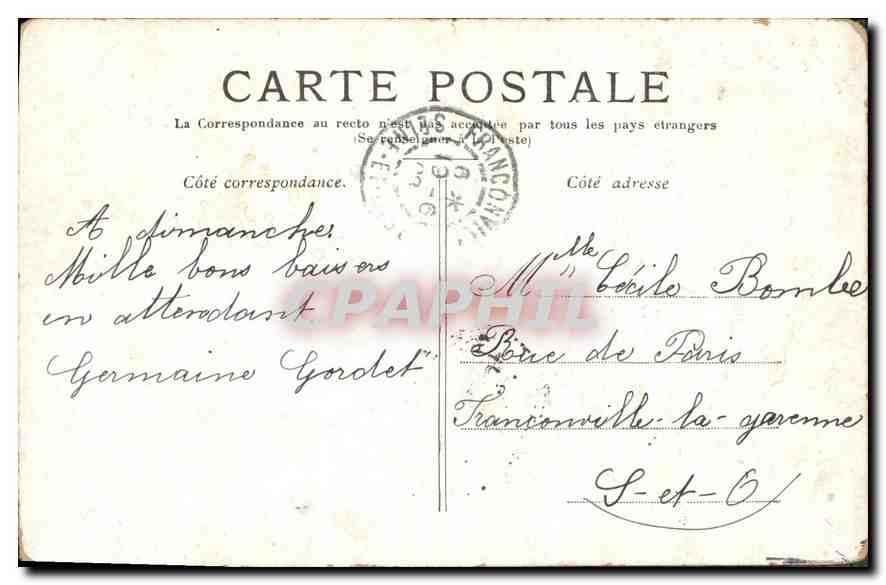 CARTE POSTALE
La Correspondance au recto n'est pas acceptée par tous les pays étrangers
(Se renseigner à la Poste)
Côté correspondance.
Côté adresse
A dimanche.
Mille bons baisers
en attendant
Germaine Gordet
Mlle Cécile Bombe
Rue de Paris
Franconville-la-garenne
S-et-O
CPAPHIL